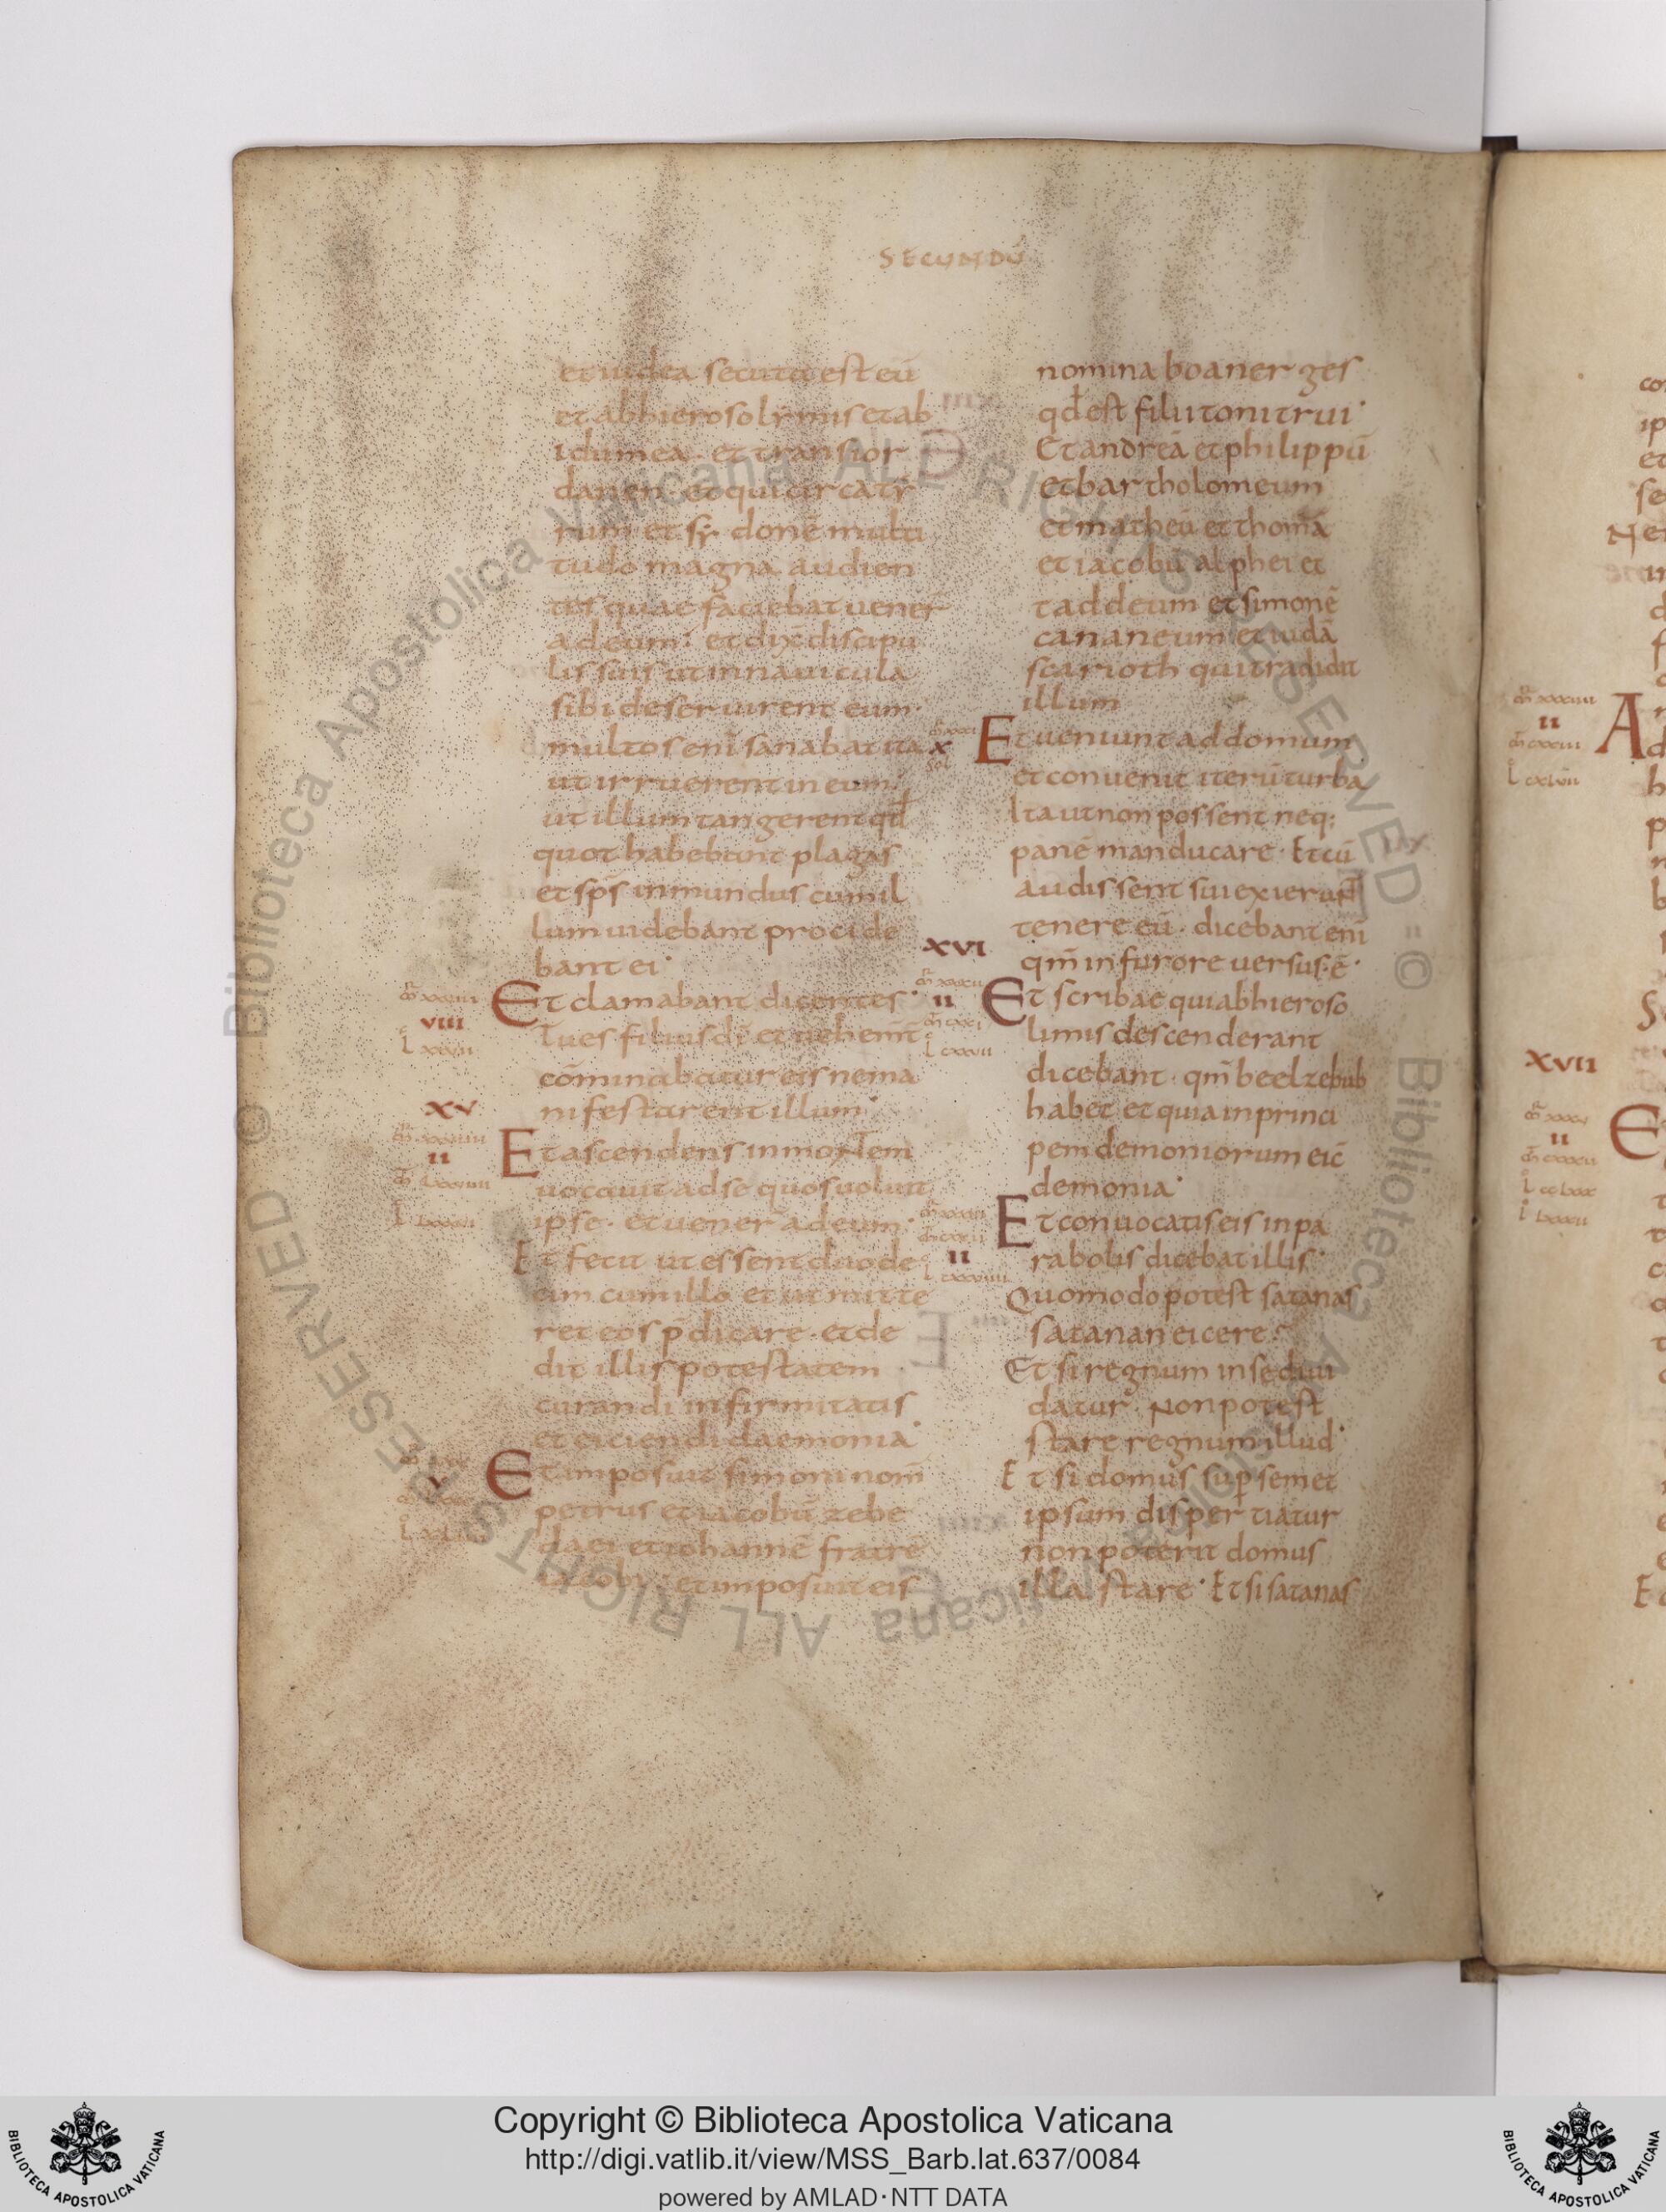 SECUNDŪ
et iudea secuta est eū
et abhierosolymis et ab
idumea · et transior
danen · et qui circa tÿ
rum et sÿ donē multi
tudo magna audien
tes quae faciebat uener̄
ad eum · et dix̄ discipu
lis suis ut in nauicula
sibi deseruirent eum ·
multos enī sanabat ita
ut irruerent in eum
ut illum tangerent qđ
quot habebant plagas
et sp̄s inmundus cum il
lum uidebant procide
bant ei ·
Et clamabant dicentes ·
Tu es filius dī et uehem̄t
cōminabatur eis ne ma
nifestarent illum ·
XV
Et ascendens in montem
uocauit ad se quos uoluit
ipse · et uener ad eum ·
Et fecit ut essent duode
cim cum illo et ut mitte
ret eos p̄dicare · et de
dit illis potestatem
curandi infirmitatis
et eiciendi daemonia ·
Et imposuit simoni nom̄
petrus et iacobū zebe
daei et iohannē fratrē
iacobi · et imposuit eis
nomina boanerges
qđ est filii tonitrui ·
Et andreā et philippū
et bartholomeum
et matheū et thomā
et iacobū alphei et
taddeum et simonē
cananeum et iudā
scarioth qui tradidit
illum
Et ueniunt ad domum
et conuenit iterū turba
Ita ut non possent neq;
panē manducare · Et cū
audissent sui exierunt
tenere eū · dicebant enī
qm̄ in furore uersus ē ·
XVI
Et scribae qui abhieroso
limis descenderant
dicebant · qm̄ beelzebub
habet et quia in princi
pem demoniorum eic̄
demonia ·
Et conuocatis eis in pa
rabolis dicebat illis ·
Quomodo potest satanas
satanan eicere ·
Et si regnum in se diui
datur · Non potest
stare regnum illud ·
Et si domus sup semet
ipsum dispertiatur
non poterit domus
illa stare · Et si satanas
XVII
Copyright © Biblioteca Apostolica Vaticana
http://digi.vatlib.it/view/MSS_Barb.lat.637/0084
powered by AMLAD·NTT DATA
BIBLIOTECA APOSTOLICA VATICANA
BIBLIOTECA APOSTOLICA VATICANA